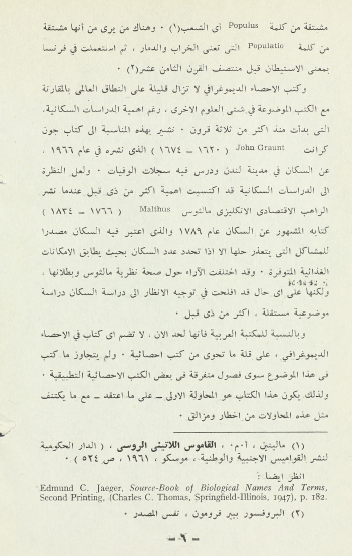 مشتقة من كلمة Populus أى الشعب(١) ٠ وهناك من يرى من أنها مشتقة
من كلمة Populatio التى تعنى الخراب والدمار ، ثم استعملت في فرنسا
بمعنى الاستيطان قبل منتصف القرن الثامن عشر(٢) ٠
وكتب الاحصاء الديموغرافي لا تزال قليلة على النطاق العالمي بالمقارنة
مع الكتب الموضوعة في شتى العلوم الاخرى ، رغم اهمية الدراسات السكانية،
التى بدأت منذ اكثر من ثلاثة قرون ٠ نشير بهذه المناسبة الى كتاب جون
كرانت John Graunt ( ١٦٢٠ – ١٦٧٤ ) الذى نشره في عام ١٩٦٦ ،
عن السكان في مدينة لندن ودرس فيه سجلات الوفيات ٠ ولعل النظرة
الى الدراسات السكانية قد اكتسبت اهمية اكثر من ذى قبل عندما نشر
الراهب الاقتصادى الانكليزى مالثوس Malthus ( ١٧٦٦ – ١٨٣٤ )
كتابه المشهور عن السكان عام ١٧٨٩ والذى اعتبر فيه السكان مصدرا
للمشاكل التى يتعذر حلها الا اذا تحدد عدد السكان بحيث يطابق الامكانات
الغذائية المتوفرة ٠ وقد اختلفت الآراء حول صحة نظرية مالثوس وبطلانها ،
ولكنها على اى حال قد افلحت في توجيه الانظار الى دراسة السكان دراسة
موضوعية مستقلة ، اكثر من ذى قبل ٠
وبالنسبة للمكتبة العربية فأنها لحد الان ، لا تضم اى كتاب في الاحصاء
الديموغرافي ، على قلة ما تحوى من كتب احصائية ٠ ولم يتجاوز ما كتب
فى هذا الموضوع سوى فصول متفرقة فى بعض الكتب الاحصائية التطبيقية ٠
ولذلك يكون هذا الكتاب هو المحاولة الاولى – على ما اعتقد – مع ما يكتنف
مثل هذه المحاولات من اخطار ومزالق ٠
(١) مالينين ، أ٠م٠ ، القاموس اللاتيني الروسي ، ( الدار الحكومية
لنشر القواميس الاجنبية والوطنية ، موسكو ، ١٩٦١ ، ص ٥٢٤ ) ٠
انظر ايضا :
Edmund C. Jaeger, Source-Book of Biological Names And Terms,
Second Printing, (Charles C. Thomas, Springfield-Illinois, 1947), p. 182.
(٢) البروفسور بيير فرومون ، نفس المصدر ٠
– ٦ –